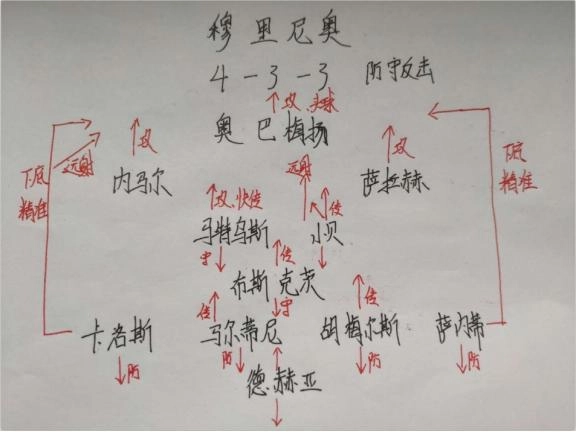 穆里尼奥
4-3-3 防守反击
攻、头球
奥巴梅扬
攻 攻
下底 远射 远射 下底
精准 内马尔 萨拉赫 精准
攻、快传 传
马特乌斯 小贝
守 传
布斯克茨
传 守 传
卡洛斯 马尔蒂尼 胡梅尔斯 萨内蒂
防 防 防 防
德赫亚